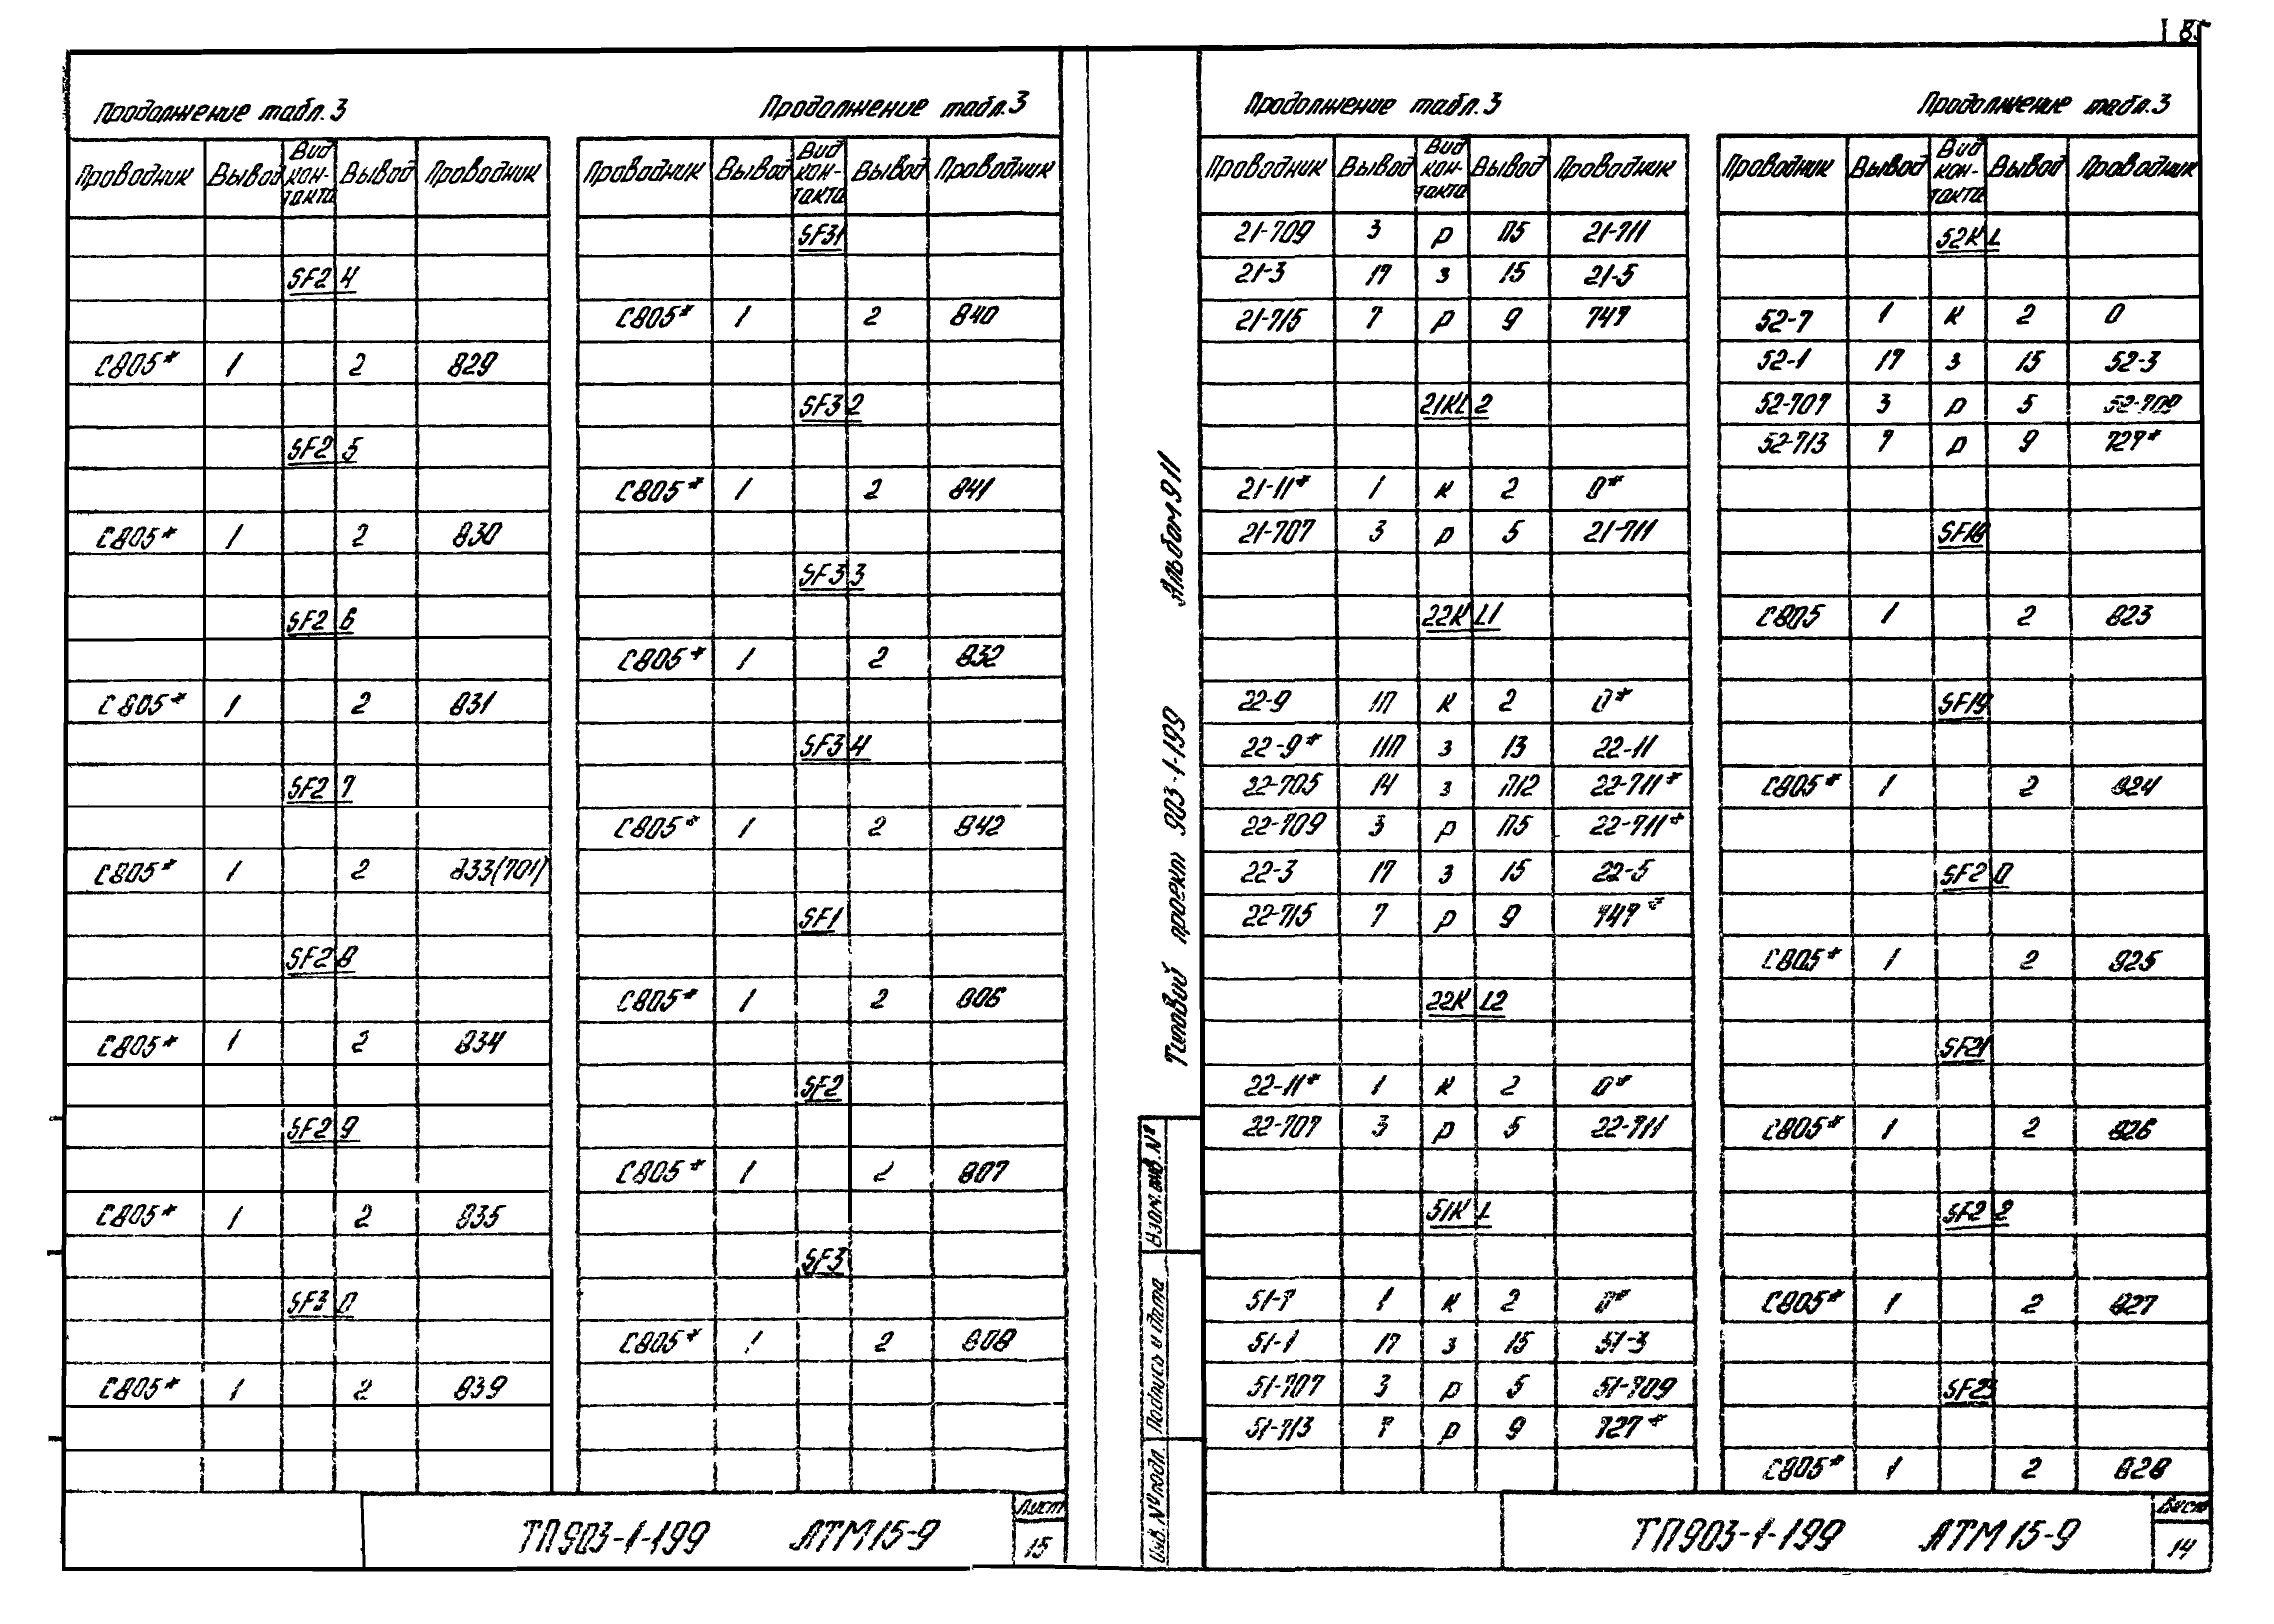 185
Продолжение табл.3
Проводник Вывод Вид кон-такта Вывод Проводник
SF24
С805* 1 2 829
SF25
С805* 1 2 830
SF26
С805* 1 2 831
SF27
С805* 1 2 833(701)
SF28
С805* 1 2 834
SF29
С805* 1 2 835
SF30
С805* 1 2 839
Продолжение табл.3
Проводник Вывод Вид кон-такта Вывод Проводник
SF31
С805* 1 2 840
SF32
С805* 1 2 841
SF33
С805* 1 2 832
SF34
С805* 1 2 842
SF1
С805* 1 2 806
SF2
С805* 1 2 807
SF3
С805* 1 2 808
ТП903-1-199 АТМ15-9
Лист
15
Альбом 9.11
Типовой проект 903-1-199
Взам.инв.№
Подпись и дата
Инв.№подл.
Продолжение табл.3
Проводник Вывод Вид кон-такта Вывод Проводник
21-709 3 р П5 21-711
21-3 17 з 15 21-5
21-715 7 р 9 747
21KL2
21-11* 1 к 2 0*
21-707 3 р 5 21-711
22KL1
22-9 1П к 2 0*
22-9* 11П з 13 22-11
22-705 14 з П12 22-711*
22-709 3 р П5 22-711*
22-3 17 з 15 22-5
22-715 7 р 9 747*
22KL2
22-11* 1 к 2 0*
22-707 3 р 5 22-711
51KL
51-7 1 к 2 0*
51-1 17 з 15 51-3
51-707 3 р 5 51-709
51-713 7 р 9 727*
Продолжение табл.3
Проводник Вывод Вид кон-такта Вывод Проводник
52KL
52-7 1 к 2 0
52-1 17 з 15 52-3
52-707 3 р 5 52-709
52-713 7 р 9 727*
SF18
С805 1 2 823
SF19
С805* 1 2 824
SF20
С805* 1 2 825
SF21
С805* 1 2 826
SF22
С805* 1 2 827
SF23
С805* 1 2 828
ТП903-1-199 АТМ15-9
Лист
14